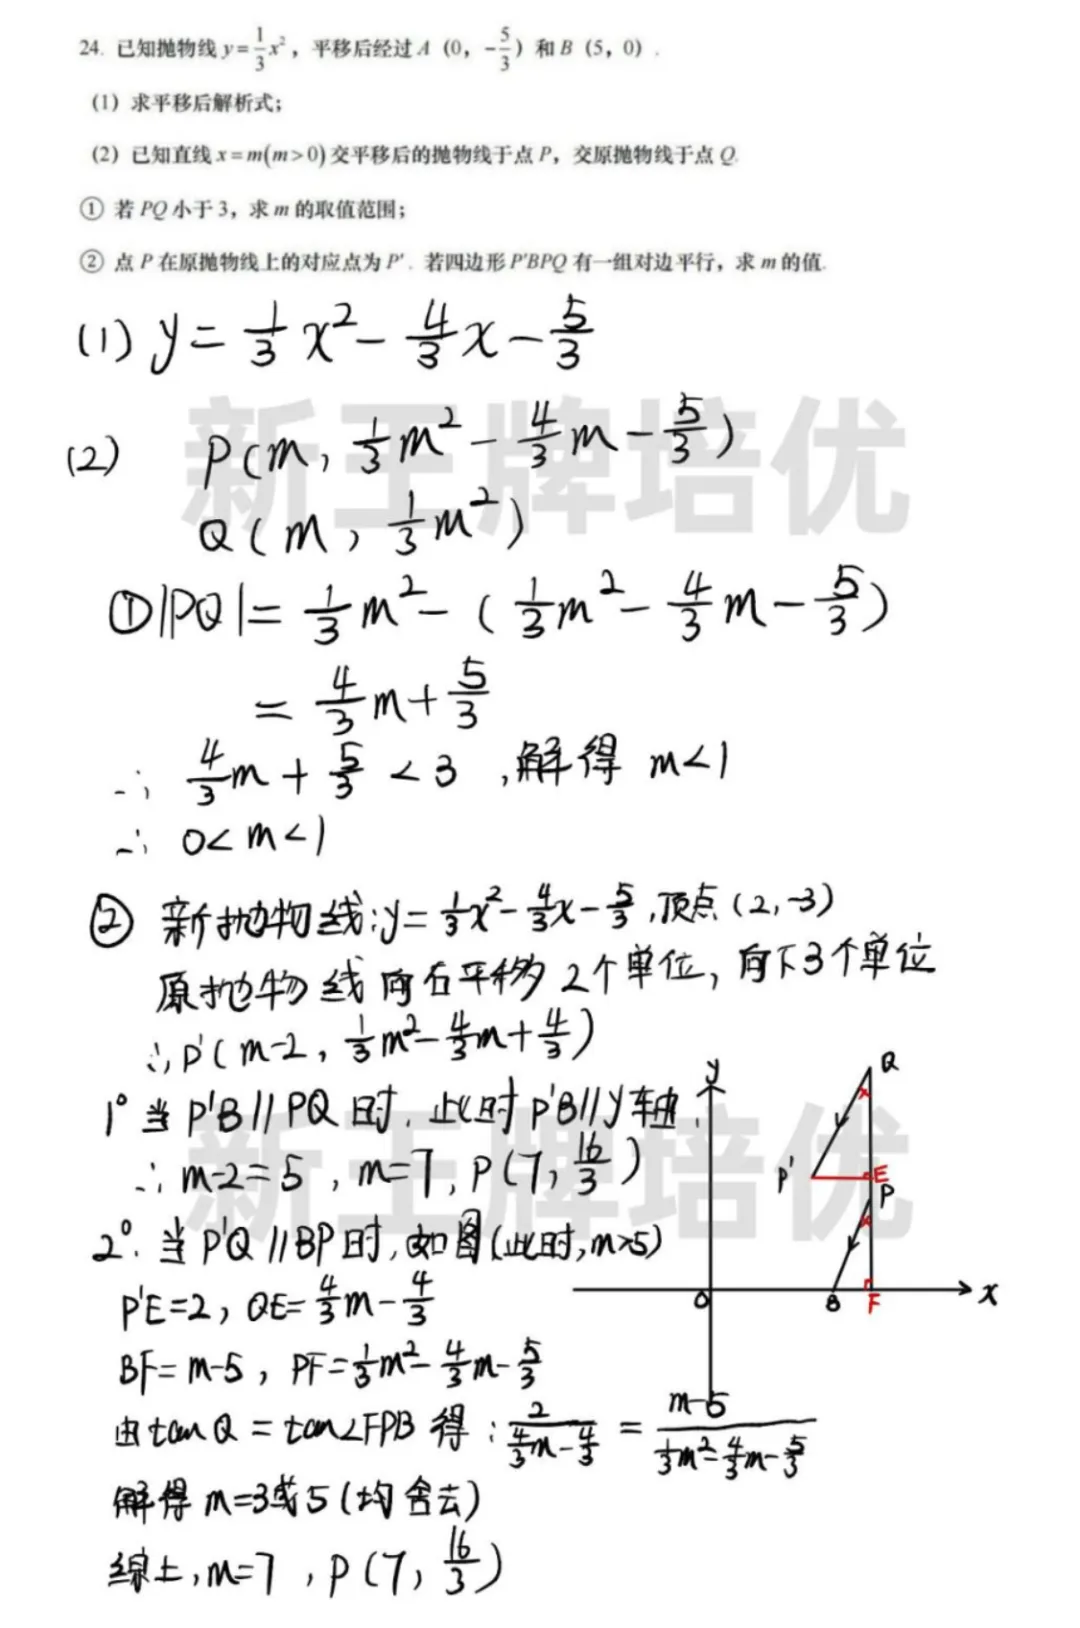 24. 已知抛物线 y=\frac{1}{3}x²，平移后经过 A（0，-\frac{5}{3}）和 B（5，0）.
（1）求平移后解析式；
（2）已知直线 x=m(m>0)交平移后的抛物线于点 P，交原抛物线于点 Q.
① 若 PQ 小于 3，求 m 的取值范围；
② 点 P 在原抛物线上的对应点为 P'. 若四边形 P'BPQ 有一组对边平行，求 m 的值.
(1) y=\frac{1}{3}x²-\frac{4}{3}x-\frac{5}{3}
新王牌培优
(2) P(m, \frac{1}{3}m²-\frac{4}{3}m-\frac{5}{3})
Q(m, \frac{1}{3}m²)
①|PQ|=\frac{1}{3}m²-(\frac{1}{3}m²-\frac{4}{3}m-\frac{5}{3})
=\frac{4}{3}m+\frac{5}{3}
∴ \frac{4}{3}m+\frac{5}{3}<3，解得 m<1
∴ 0<m<1
② 新抛物线:y=\frac{1}{3}x²-\frac{4}{3}x-\frac{5}{3}，顶点(2,-3)
原抛物线向右平移2个单位，向下3个单位
∴P'(m-2, \frac{1}{3}m²-\frac{4}{3}m+\frac{4}{3})
1° 当P'B//PQ时，此时P'B//y轴，
新王牌培优
∴m-2=5，m=7，P(7, \frac{16}{3})
2°. 当P'Q//BP时，如图(此时，m>5)
P'E=2，QE=\frac{4}{3}m-\frac{4}{3}
BF=m-5，PF=\frac{1}{3}m²-\frac{4}{3}m-\frac{5}{3}
由tanQ=tan∠FPB得：\frac{2}{\frac{4}{3}m-\frac{4}{3}}=\frac{m-5}{\frac{1}{3}m²-\frac{4}{3}m-\frac{5}{3}}
解得m=3或5(均舍去)
综上，m=7，P(7, \frac{16}{3})
y
Q
P'
E
P
O
B
F
x